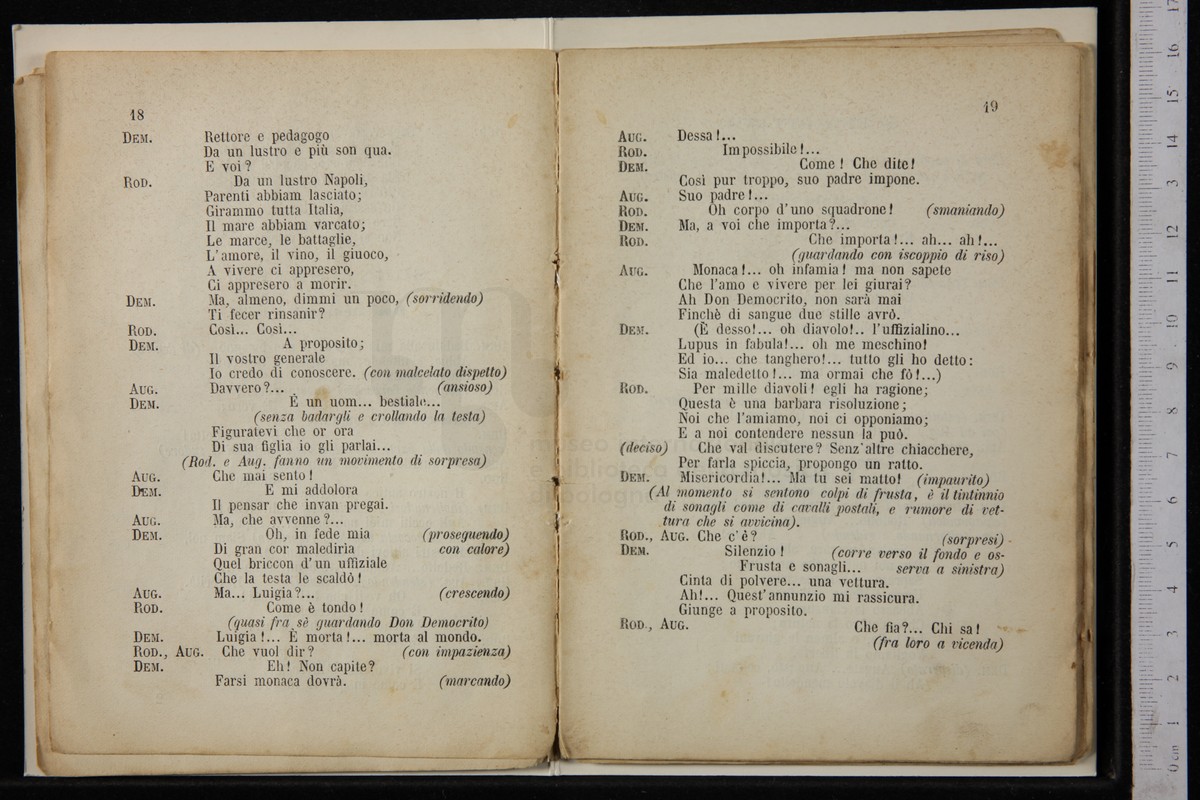 18
DEM. Rettore e pedagogo
Da un lustro e più son qua.
E voi?
ROD. Da un lustro Napoli,
Parenti abbiam lasciato;
Girammo tutta Italia,
Il mare abbiam varcato;
Le marce, le battaglie,
L'amore, il vino, il giuoco,
A vivere ci appresero,
Ci appresero a morir.
DEM. Ma, almeno, dimmi un poco, (sorridendo)
Ti fecer rinsanir?
ROD. Così... Così...
DEM. A proposito;
Il vostro generale
Io credo di conoscere. (con malcelato dispetto)
AUG. Davvero?... (ansioso)
DEM. È un uom... bestiale...
(senza badargli e crollando la testa)
Figuratevi che or ora
Di sua figlia io gli parlai...
(Rod. e Aug. fanno un movimento di sorpresa)
AUG. Che mai sento!
DEM. E mi addolora
Il pensar che invan pregai.
AUG. Ma, che avvenne?...
DEM. Oh, in fede mia (proseguendo)
Di gran cor malediria con calore)
Quel briccon d'un uffiziale
Che la testa le scaldò!
AUG. Ma... Luigia?... (crescendo)
ROD. Come è tondo!
(quasi fra sè guardando Don Democrito)
DEM. Luigia!... È morta!... morta al mondo.
ROD., AUG. Che vuol dir? (con impazienza)
DEM. Eh! Non capite?
Farsi monaca dovrà. (marcando)
19
AUG. Dessa!...
ROD. Impossibile!...
DEM. Come! Che dite!
Così pur troppo, suo padre impone.
AUG. Suo padre!...
ROD. Oh corpo d'uno squadrone! (smaniando)
DEM. Ma, a voi che importa?...
ROD. Che importa!... ah... ah!...
(guardando con iscoppio di riso)
AUG. Monaca!... oh infamia! ma non sapete
Che l'amo e vivere per lei giurai?
Ah Don Democrito, non sarà mai
Finchè di sangue due stille avrò.
DEM. (È desso!... oh diavolo!.. l'uffizialino...
Lupus in fabula!... oh me meschino!
Ed io... che tanghero!... tutto gli ho detto:
Sia maledetto!... ma ormai che fò!...)
ROD. Per mille diavoli! egli ha ragione;
Questa è una barbara risoluzione;
Noi che l'amiamo, noi ci opponiamo;
E a noi contendere nessun la può.
(deciso) Che val discutere? Senz'altre chiacchere,
Per farla spiccia, propongo un ratto.
DEM. Misericordia!... Ma tu sei matto! (impaurito)
(Al momento si sentono colpi di frusta, è il tintinnio
di sonagli come di cavalli postali, e rumore di vet-
tura che si avvicina).
ROD., AUG. Che c'è? (sorpresi)
DEM. Silenzio! (corre verso il fondo e os-
Frusta e sonagli... serva a sinistra)
Cinta di polvere... una vettura.
Ah!... Quest'annunzio mi rassicura.
Giunge a proposito.
ROD., AUG. Che fia?... Chi sa!
(fra loro a vicenda)